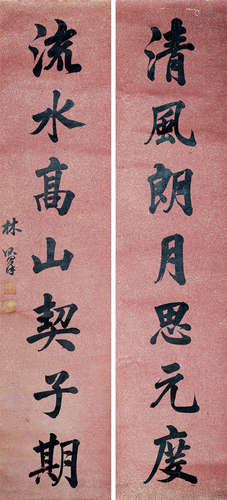 清風朗月思元度
流水高山契子期
林